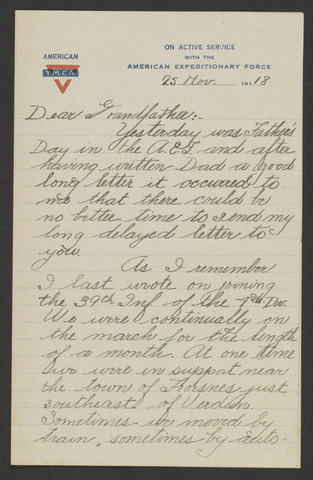 AMERICAN
Y.M.C.A.
ON ACTIVE SERVICE
WITH THE
AMERICAN EXPEDITIONARY FORCE
25 Nov. 191 18
Dear Grandfather:-
Yesterday was Father's
Day in the A.E.F. and after
having written Dad a good
long letter it occurred to
me that there could be
no better time to send my
long delayed letter to
you.
As I remember
I last wrote on joining
the 39th Inf of the 4th Div.
We were continually on
the march for the length
of a month. At one time
we were in support near
the town of just
southeast of Verdun.
Sometimes we moved by
train, sometimes by auto-